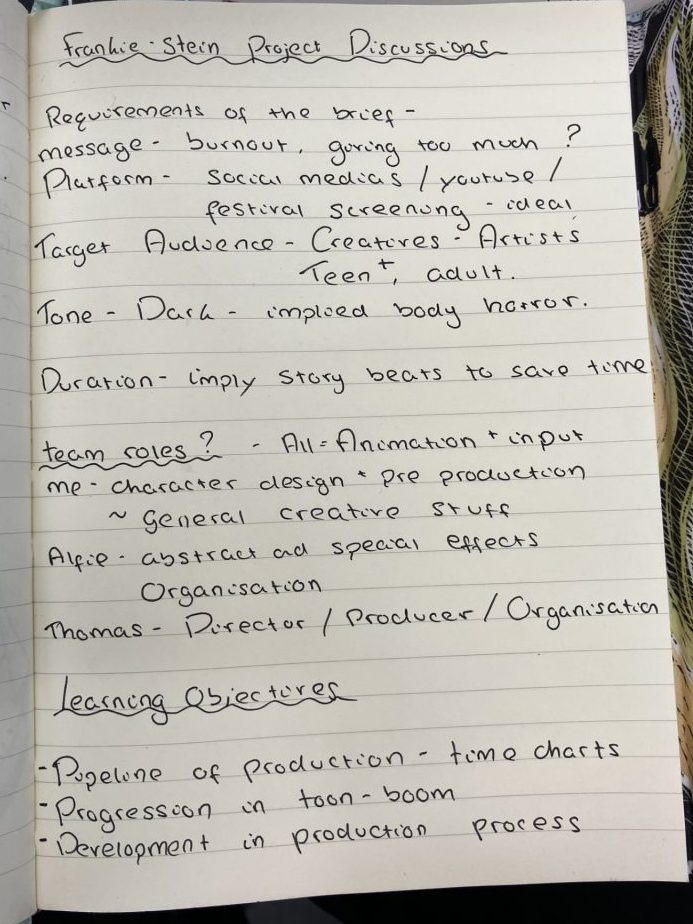 Frankie-Stein Project Discussions
Requirements of the brief -
message - burnout, giving too much ?
Platform - social medias / youtube /
festival screening - ideal
Target Audience - Creatives - Artists
Teen+, adult.
Tone - Dark - implied body horror.
Duration - imply story beats to save time
team roles? - All = Animation + input
me - character design + pre production
~ general creative stuff
Alfie - abstract ad special effects
Organisation
Thomas - Director / Producer / Organisation
Learning Objectives
- Pipeline of production - time charts
- Progression in toon-boom
- Development in production process